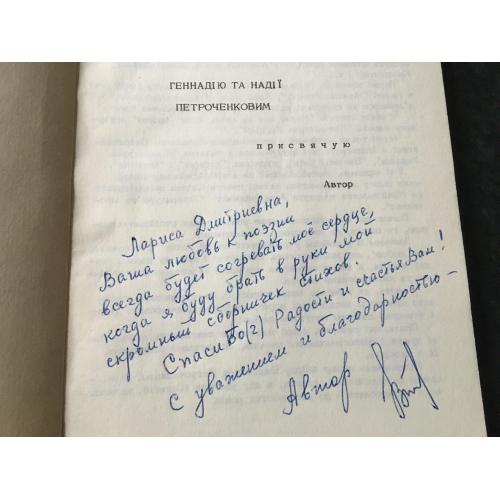 ГЕННАДІЮ ТА НАДІЇ
ПЕТРОЧЕНКОВИМ
присвячую
Автор
Лариса Дмитриевна,
Ваша любовь к поэзии
всегда будет согревать моё сердце,
когда я буду брать в руки мой
скромный сборничек стихов.
Спаси Бо(г) Радости и счастья Вам!
С уважением и благодарностью –
Автор